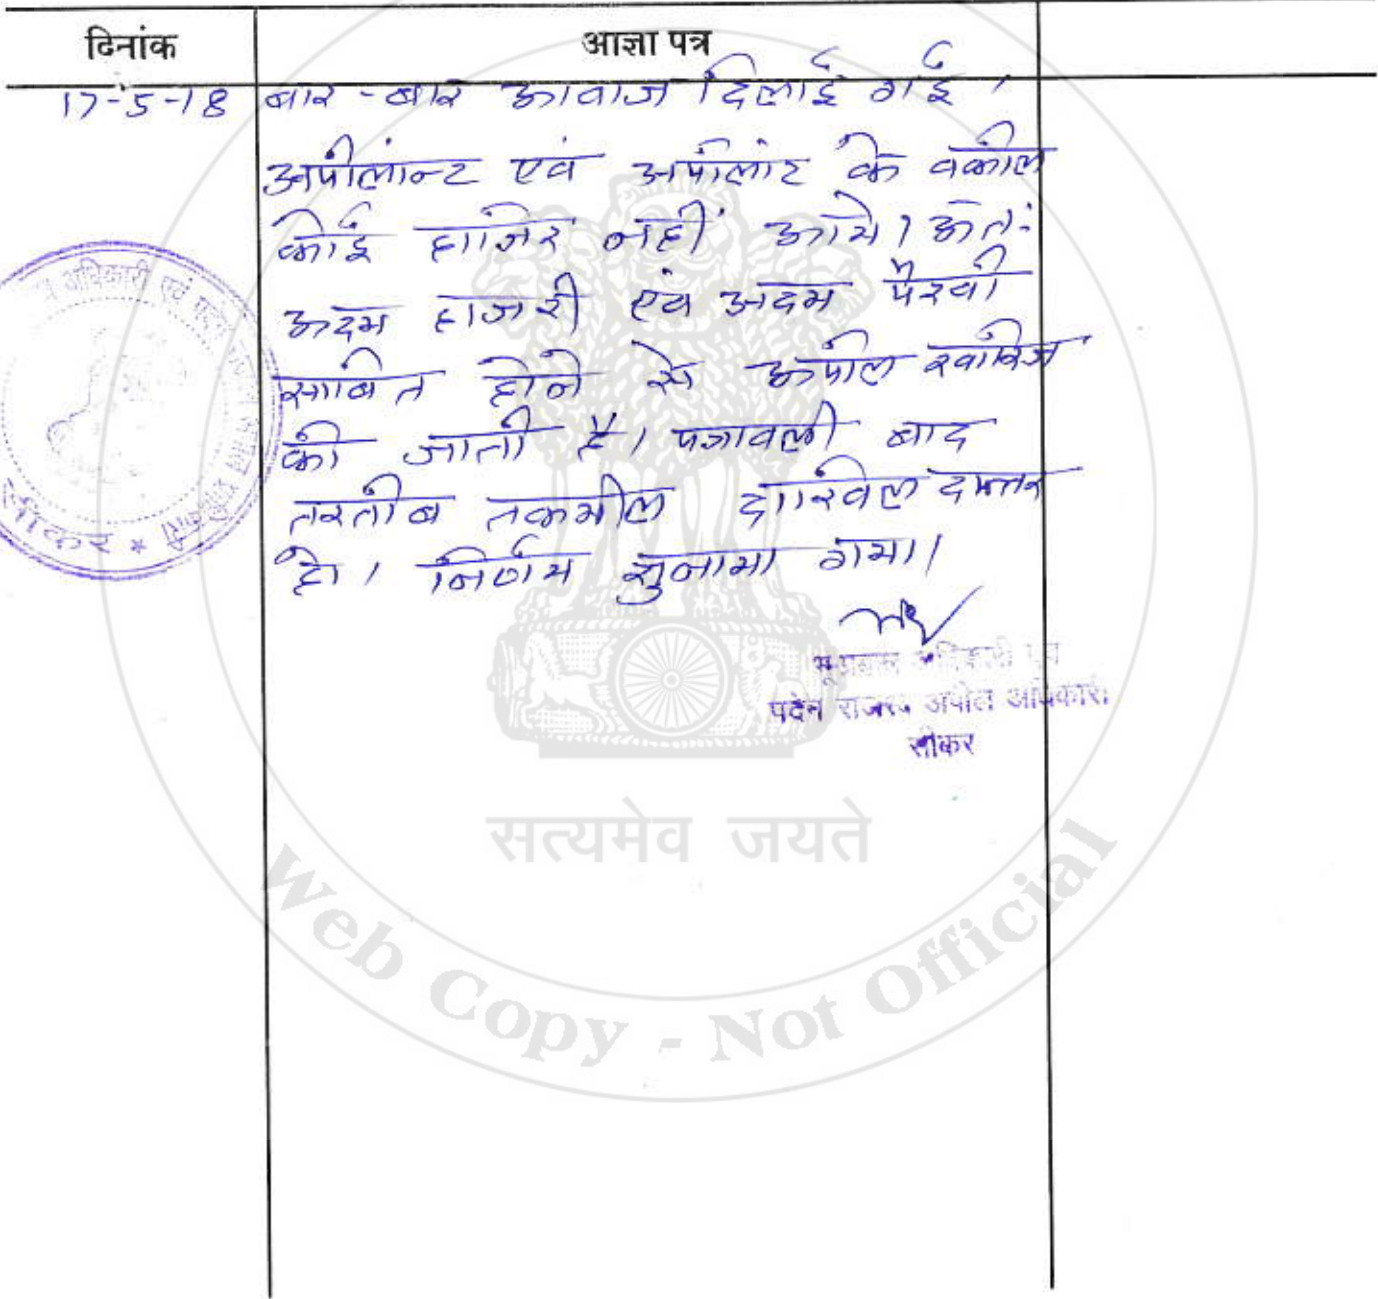 दिनांक आज्ञा पत्र
17-5-18 बार-बार आवाज दिलाई गई ।
अपीलान्ट एवं अपीलांट के वकील
कोई हाजिर नहीं आये। अतः
अदम हाजरी एवं अदम पैरवी
साबित होने से अपील खारिज
की जाती है। पत्रावली बाद
तरतीब तकमील दाखिल दफ्तर
हो। निर्णय सुनाया गया।
पदेन राजस्व अपील अधिकारी
सीकर
अधिकारी एवं
सीकर *
सत्यमेव जयते
Web Copy - Not Official